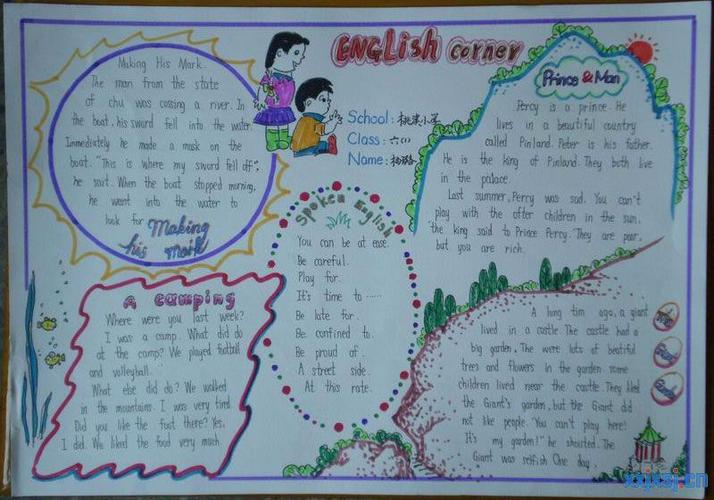 ENGLish corner
School: 桃溪小学
Class: 六(1)
Name:
Making His Mark.
The man from the state
of chu was cossing a river. In
the boat, his sword fell into the water.
Immediately he made a mask on the
boat. "This is where my sword fell off",
he sait. When the boat stopped morning,
he want into the water to
look for
Making
his mark
A camping
Where were you last week?
I was a camp. What did do
at the camp? We played football
and volleyball.
What else did do? We walked
in the mountains. I was very tired
Did you like the foot there? Yes,
I did. We liked the food very much
Spoken English
You can be at ease.
Be careful.
Play for.
It's time to ......
Be late for.
Be confined to.
Be proud of.
A street side.
At this rate.
Prince & Man
Percy is a prince. He
lives in a beautiful country
called Pinland. Peter is his father.
He is the king of Pinland. They both live
in the palace.
Last summer, Perry was sad. You can't
play with the other children in the sun.
the king said to Prince Percy. They are poor,
but you are rich.
A lung tim ago, a giant
lived in a castle The castle had a
big garden. The were lots of beatiful
trees and flowers in the garden some
children lived near the castle They liked
the Giant's garden, but the Giant did
not like people. "You can't play here!
It's my garden!" he shouted. The
Giant was selfish One day,
The
Giant
Garden
xxjxsj.cn